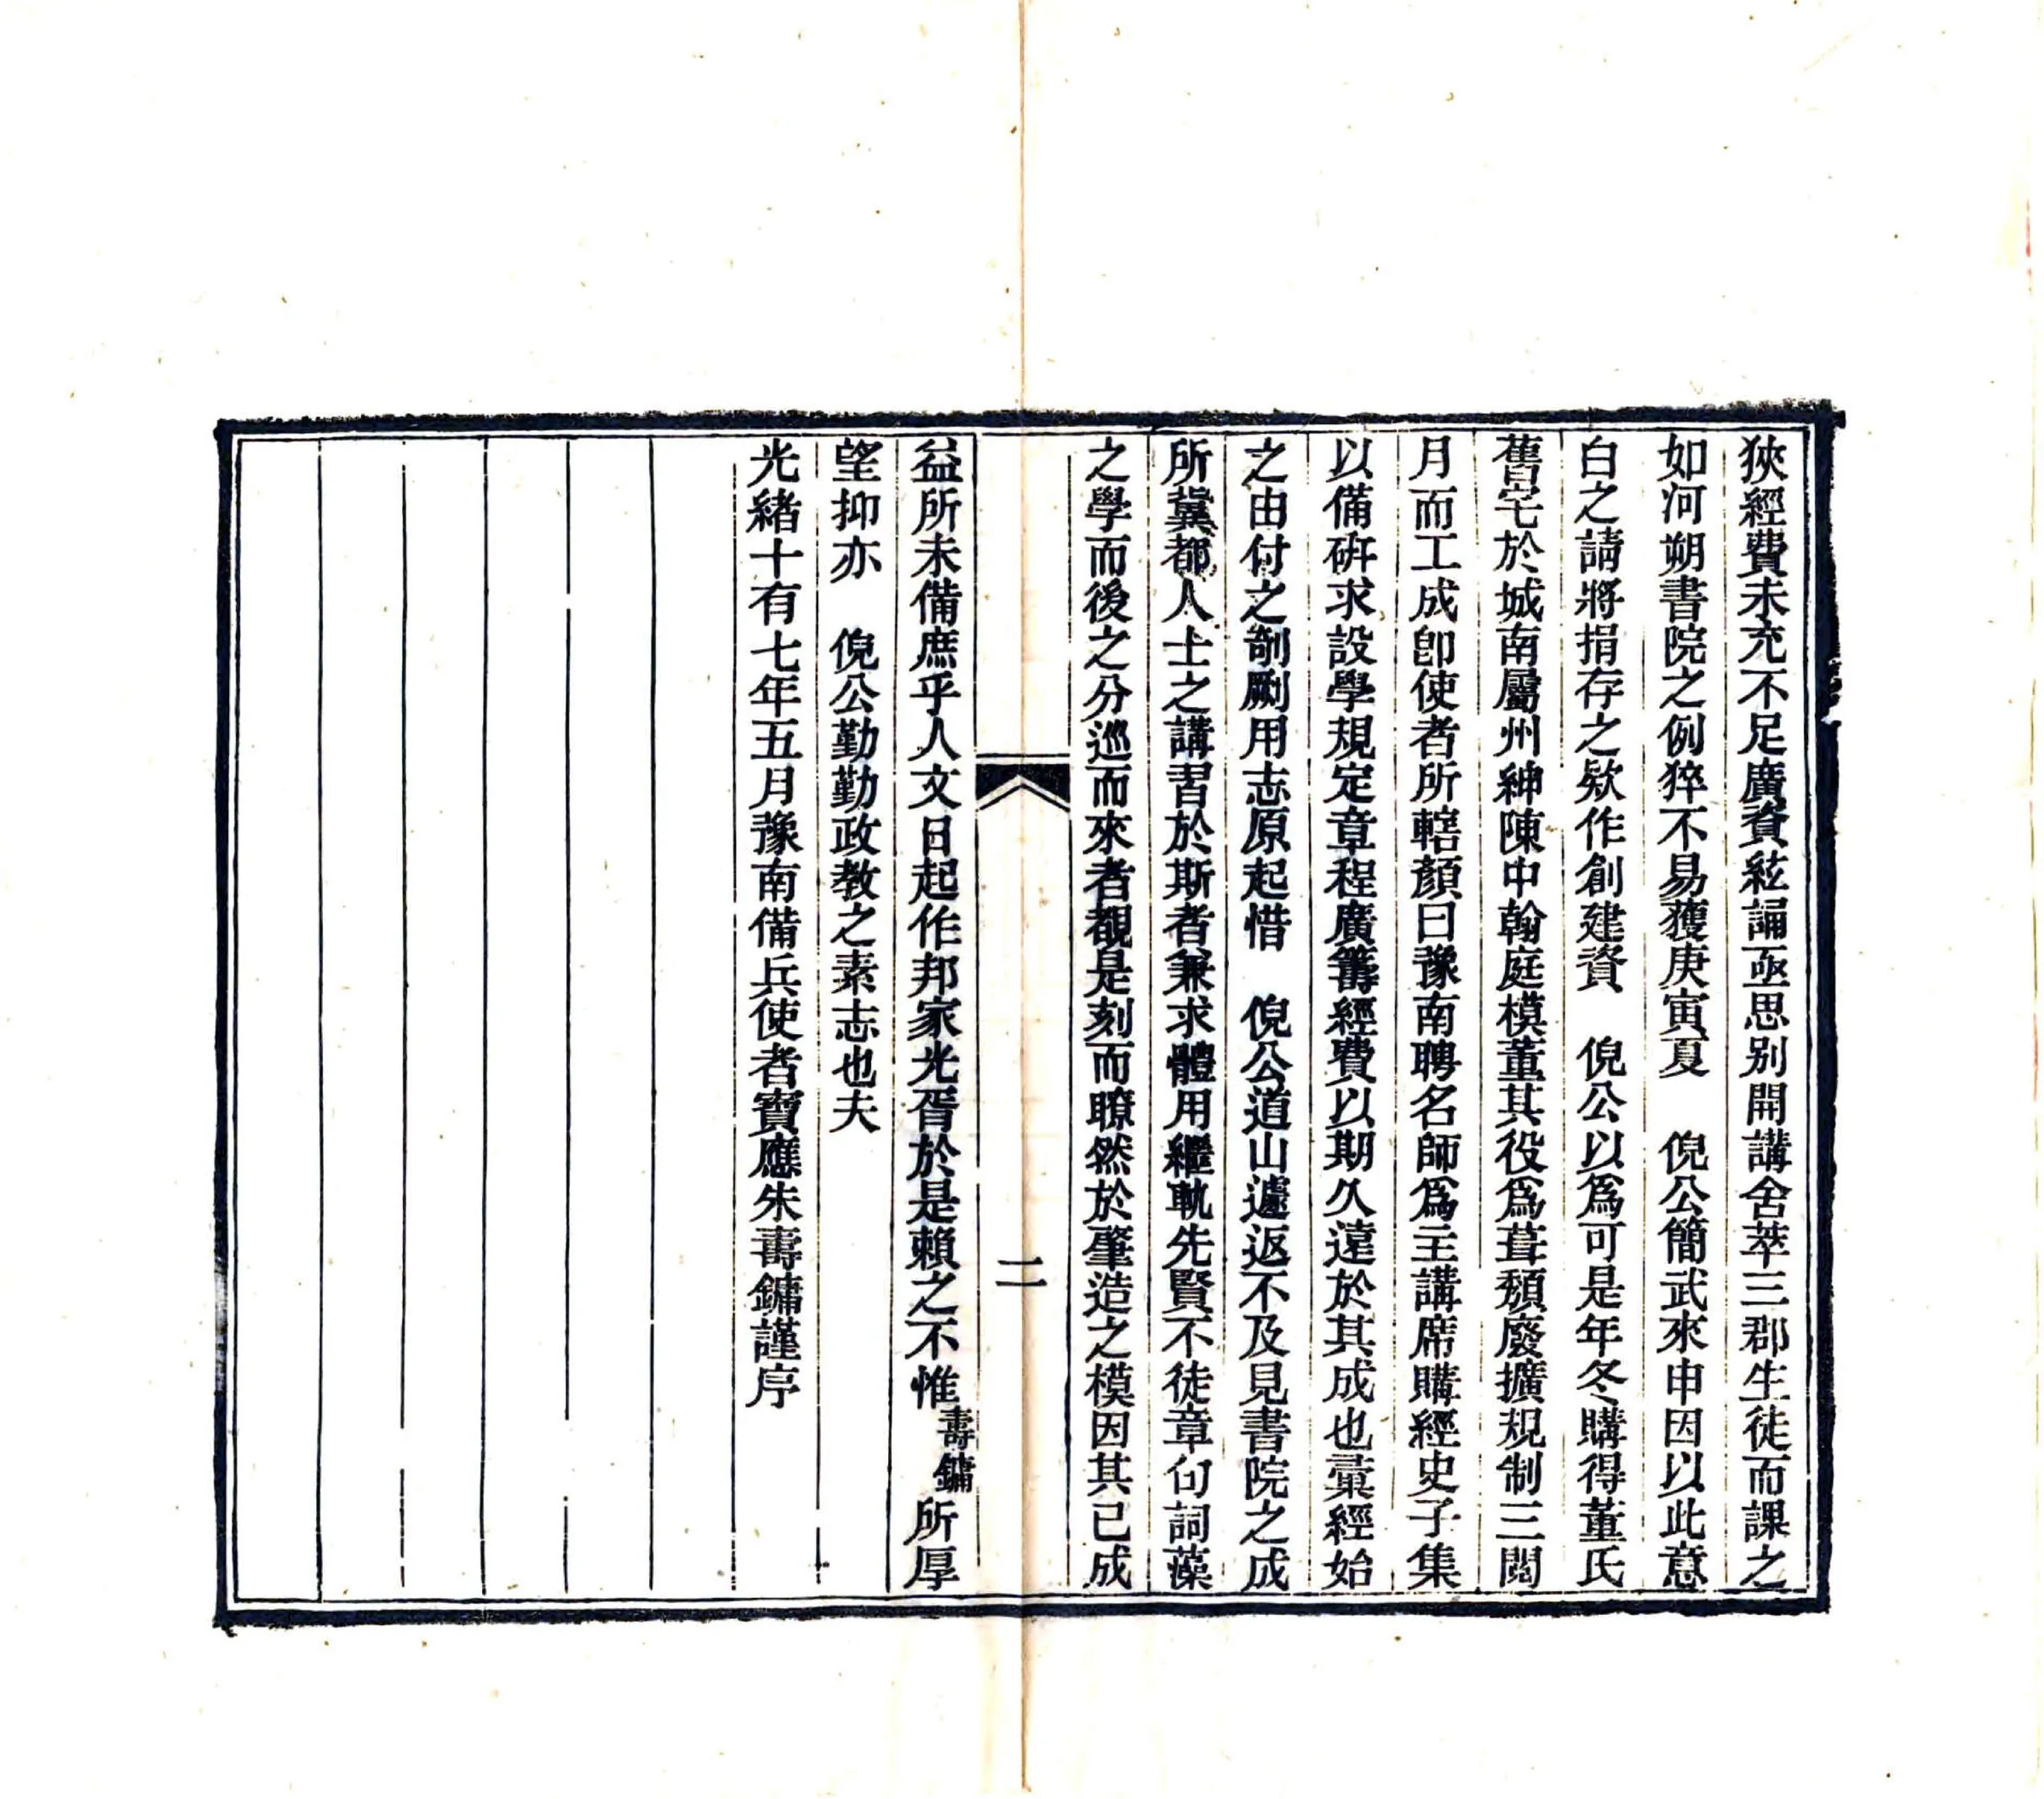 狹經費未充不足廣資絃誦亟思别開講舍萃三郡生徒而課之
如河朔書院之例猝不易獲庚寅夏　倪公簡武來申因以此意
白之請將捐存之欵作創建資　倪公以爲可是年冬購得董氏
舊宅於城南屬州紳陳中翰庭模董其役爲葺頽廢擴規制三閱
月而工成卽使者所轄顏曰豫南聘名師爲主講席購經史子集
以備硏求設學規定章程廣籌經費以期久遠於其成也彙經始
之由付之剞劂用志原起惜　倪公道山遽返不及見書院之成
所冀都人士之講習於斯者兼求體用繼軌先賢不徒章句詞藻
之學而後之分巡而來者覩是刻而瞭然於肇造之模因其已成
二
益所未備庶乎人文日起作邦家光胥於是賴之不惟壽鏞所厚
望抑亦　倪公勤勤政教之素志也夫
光緒十有七年五月豫南備兵使者寶應朱壽鏞謹序